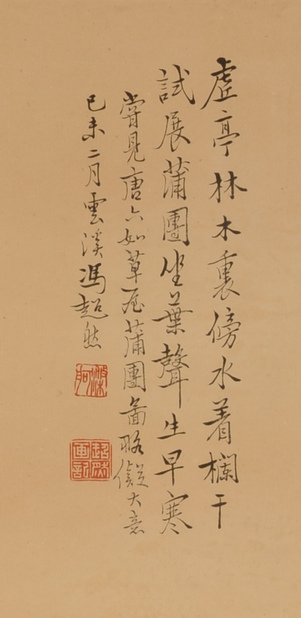 虛亭林木裏傍水着欄干
試展蒲團坐葉聲生早寒
嘗見唐六如草屋蒲團畧擬大意
己未二月雲溪馮超然